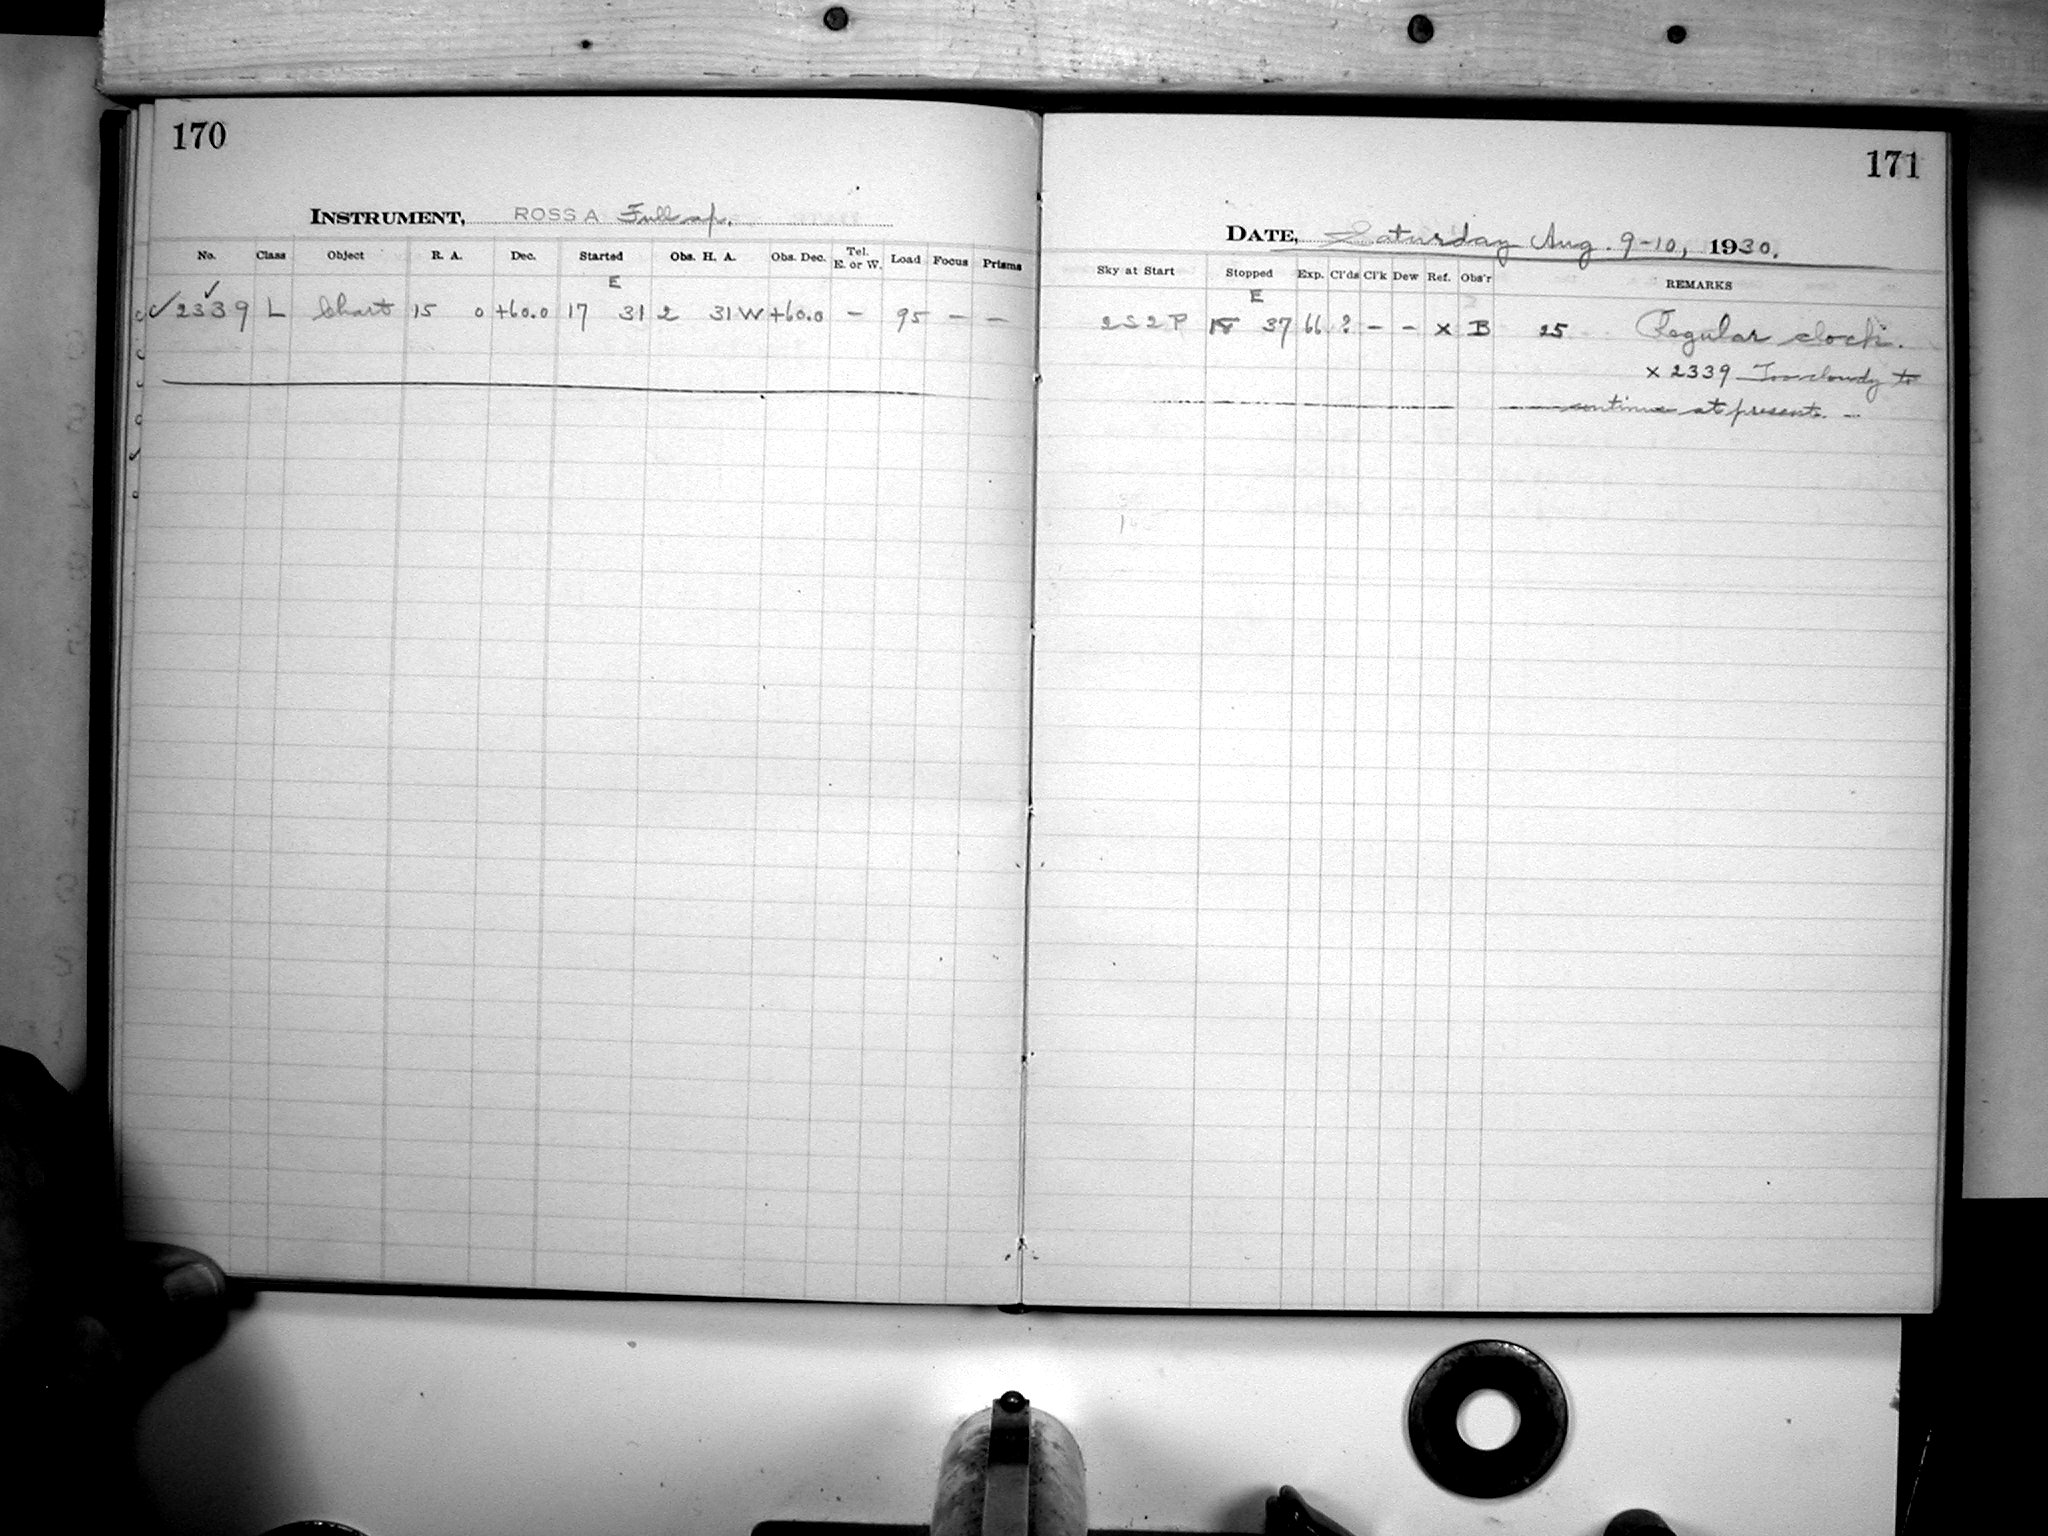 170
INSTRUMENT, ROSS A Full ap.
No. Class Object R. A. Dec. Started Obs. H. A. Obs. Dec. Tel. E. or W. Load Focus Prisms
E
✓ 2339 L Chart 15 0 +60.0 17 31 2 31 W +60.0 – 95 – –
171
DATE, Saturday Aug. 9-10, 1930.
Sky at Start Stopped Exp. Cl'ds Cl'k Dew Ref. Obs'r REMARKS
E
2 S 2 P 18 37 66 ? – – x B 25 Regular clock.
x 2339 Too cloudy to
continue at present. –